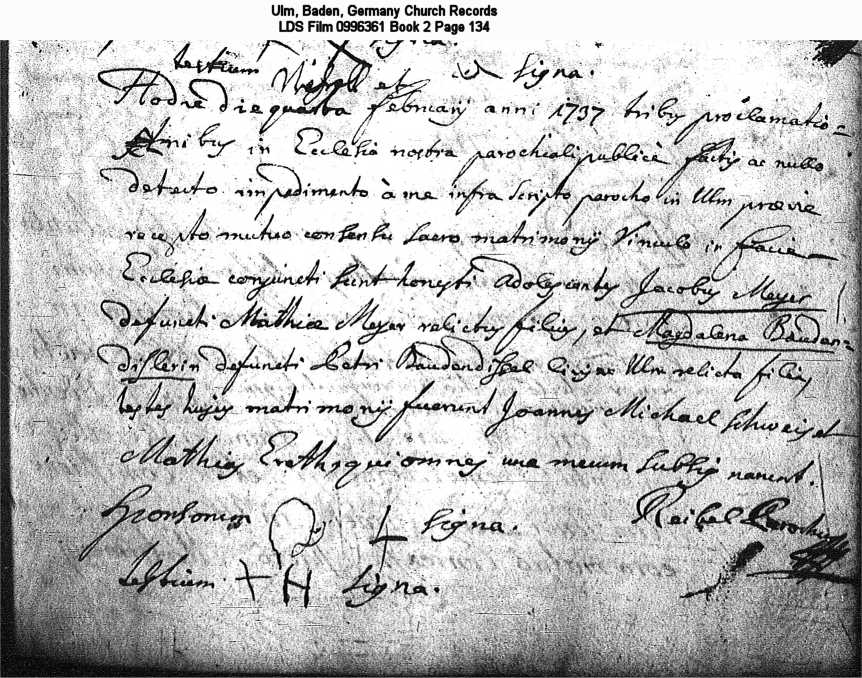 Ulm, Baden, Germany Church Records
LDS Film 0996361 Book 2 Page 134
signa.
testium et signa.
Hodie die quarta februarij anni 1737 tribus proclamatio=
nibus in Ecclesia nostra parochiali publicè factis ac nullo
detecto impedimento à me infra scripto parocho in Ulm prævie
recepto mutuo consensu sacro matrimonij Vinculo in facie
Ecclesiæ conjuncti sunt honesti Adolescentes Jacobus Meyer
defuncti Mathiæ Meyer relictus filius, et Magdalena Bauden=
distlerin defuncti Petri Baudendistel civis ac Ulm relicta filia,
testes hujus matrimonij fuerunt Joannes Michael Schweis et
Mathias Erath qui omnes una mecum subsignarunt.
Sponsorum signa. Reibel Parochus
testium + H signa.